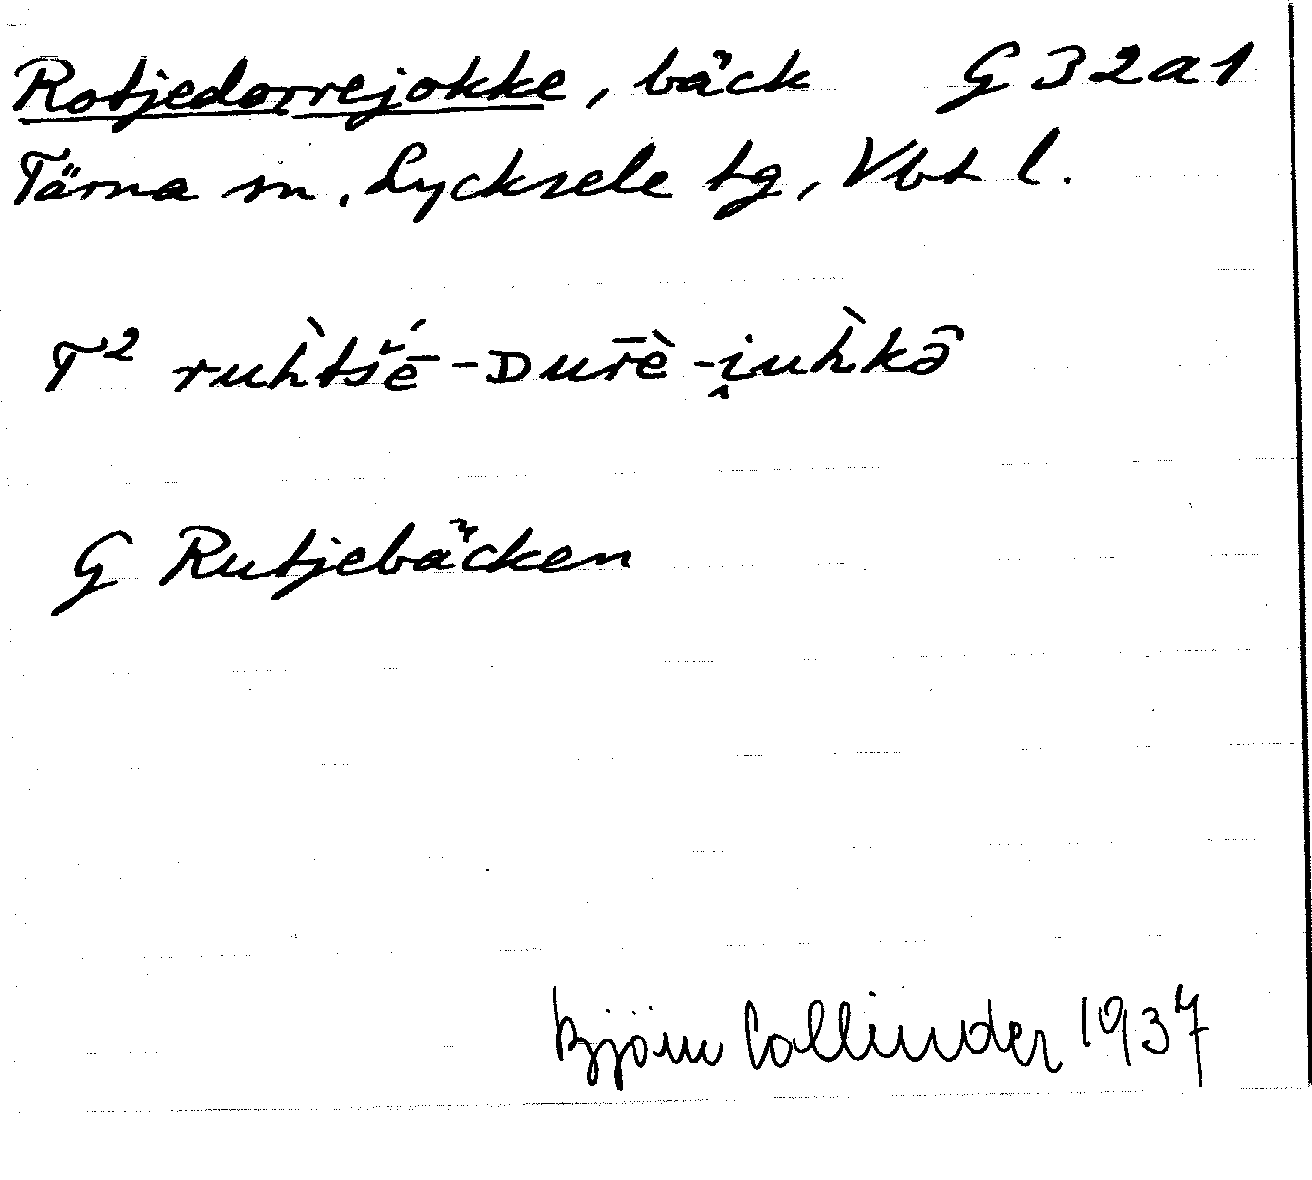 Rotjedorrejokke, bäck G 32a1
Tärna sn. Lycksele tg, Vbt l.
T² ruh̀tšḗ-Dur̄ḕ-i̯uh̀kə̑
G Rutjebäcken
Björn Collinder 1937